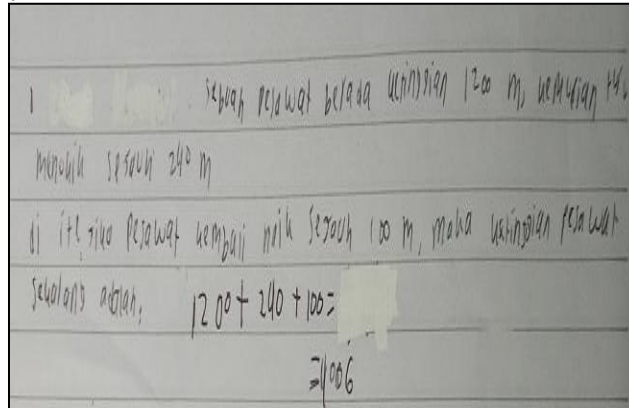 1 sebuah pesawat berada ketinggian 1200 m, kemudian
menukik sejauh 240 m
di ite, jika pesawat kembali naik sejauh 100 m, maka ketinggian pesawat
sekarang adalah,
1200 + 240 + 100 =
= 1006